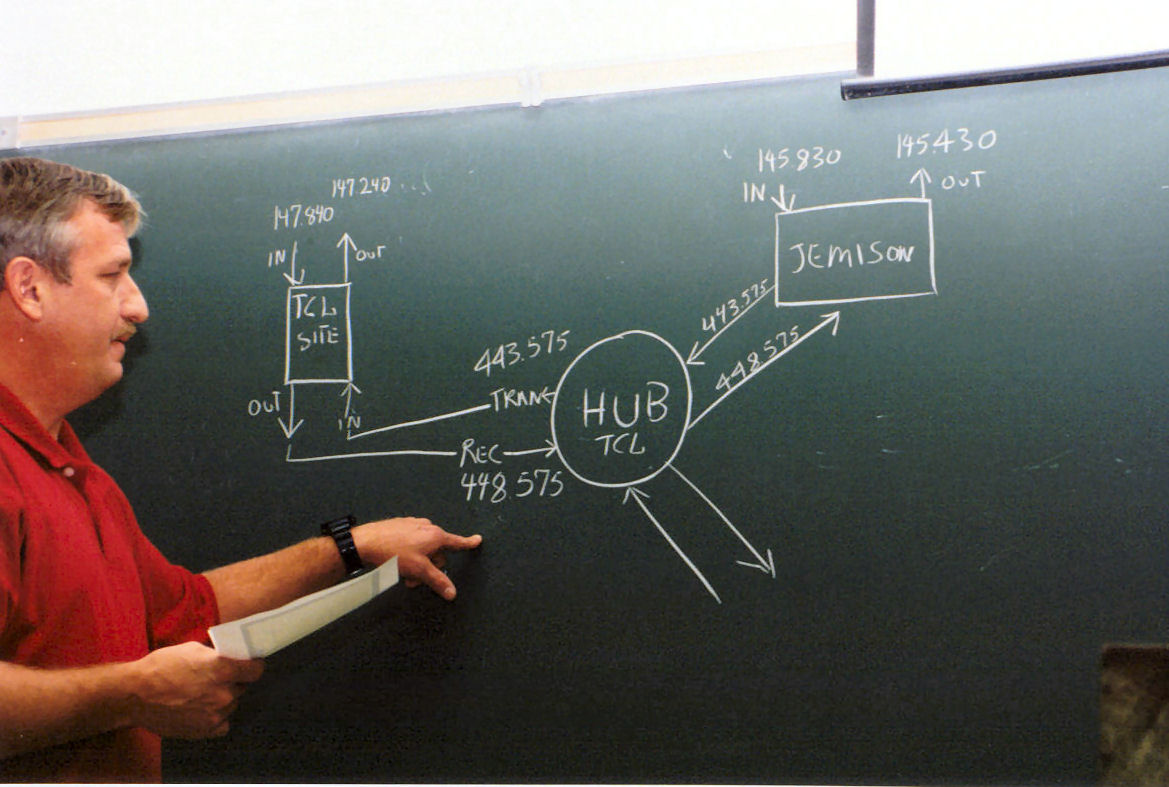 147.240
147.840
IN
OUT
TCL
SITE
OUT
IN
443.575
TRAN
REC
448.575
HUB
TCL
145.830
145.430
IN
OUT
JEMISON
443.575
448.575